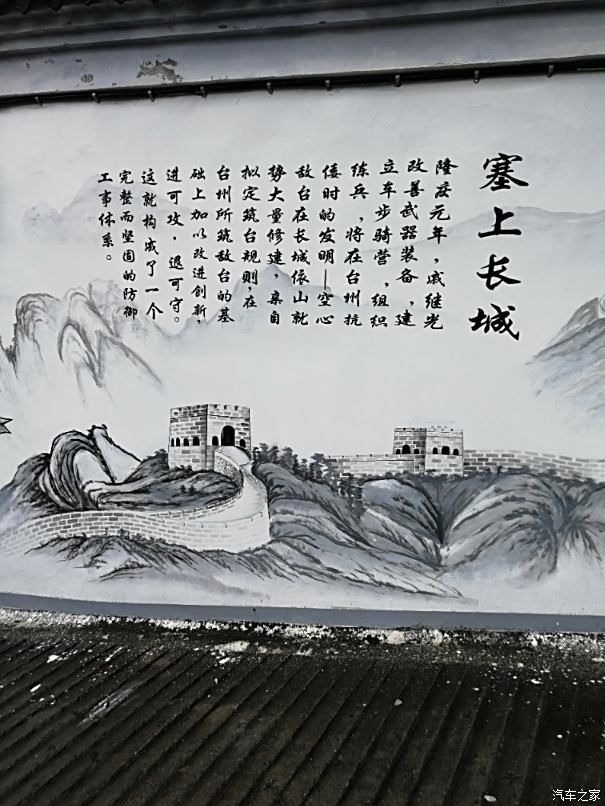 塞上长城
隆庆元年，戚继光
改善武器装备，建
立车步骑营，组织
练兵，将在台州抗
倭时的发明—空心
敌台在长城依山就
势大量修建，亲自
拟定筑台规则，在
台州所筑敌台的基
础上加以改进创新，
进可攻，退可守。
这就构成了一个
完整而坚固的防御
工事体系。
汽车之家